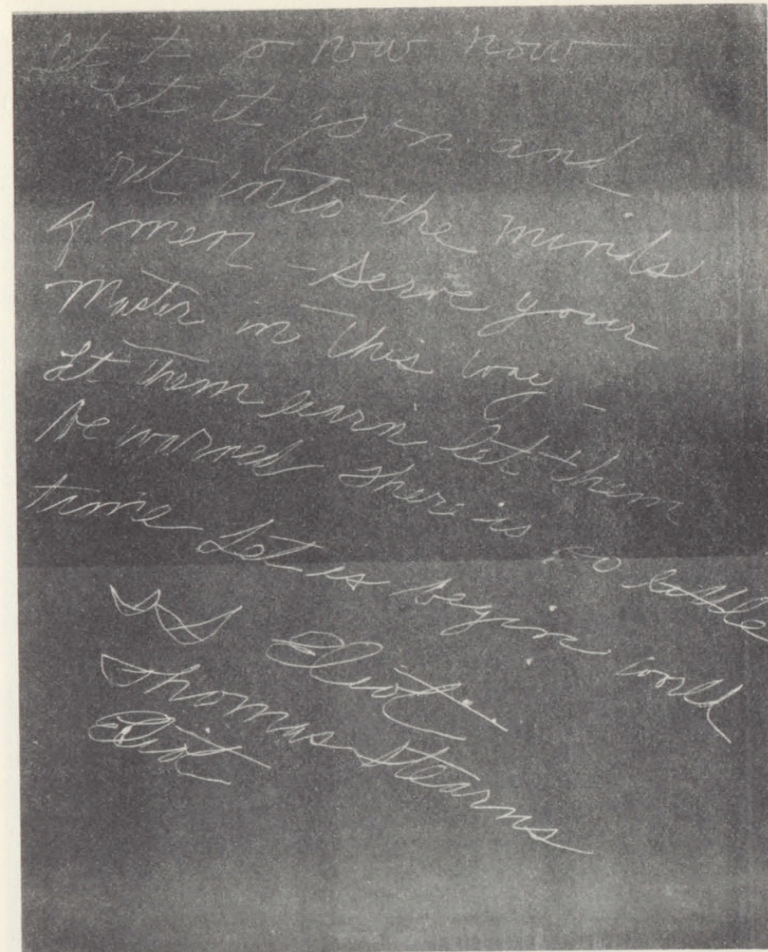 Let t o now now
Let it go on and
out into the minds
of men - serve your
Master in this way -
Let them learn let them
be warned there is so little
time Let us begin world
T S Eliot
Thomas Stearns
Eliot